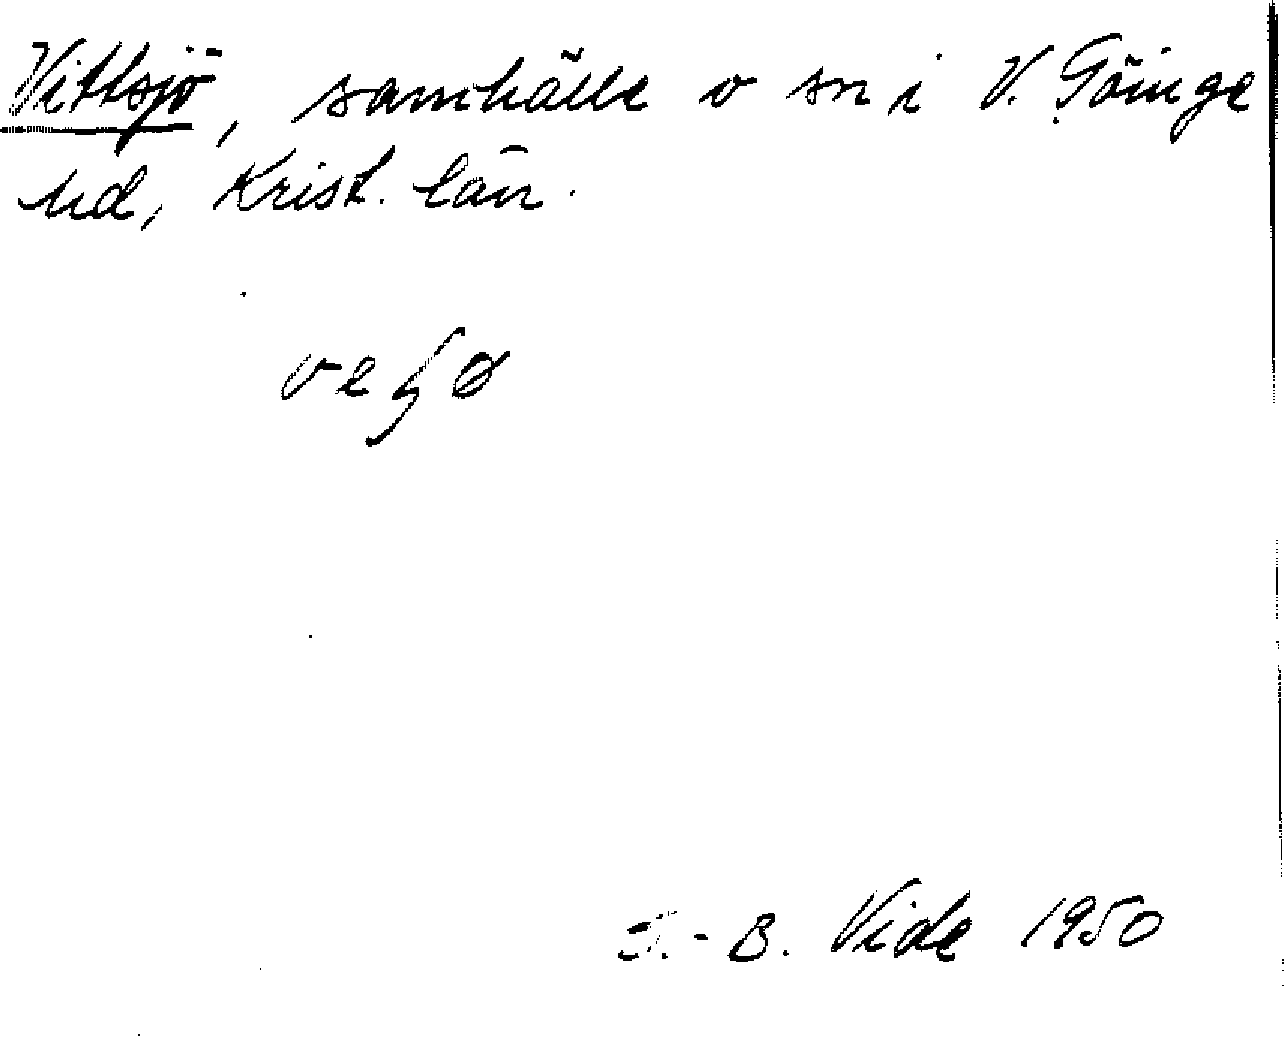 Vittsjö, samhälle o sn i V. Göinge
hd, Krist. län.
veʃø
S.-B. Vide 1950